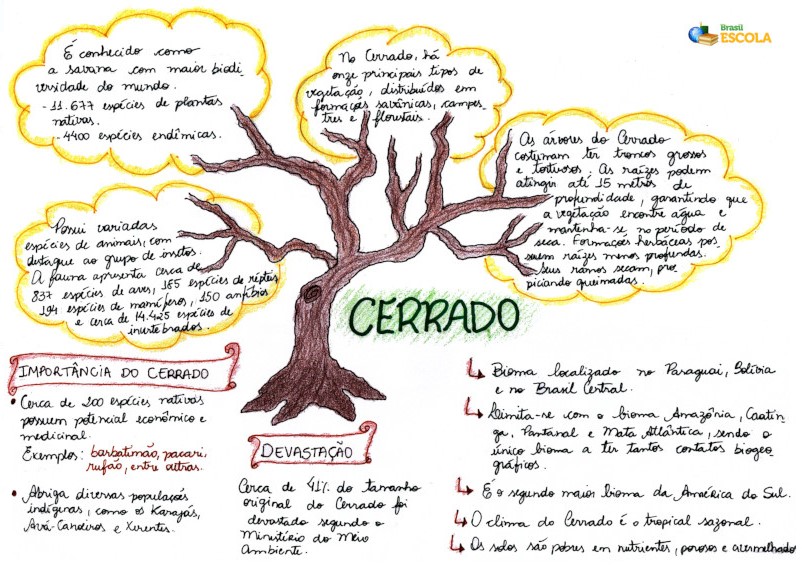 Brasil
ESCOLA
É conhecido como
a savana com maior biodi
versidade do mundo.
- 11.677 espécies de plantas
nativas.
- 4400 espécies endêmicas.
No Cerrado, há
onze principais tipos de
vegetação, distribuídos em
formações savânicas, campes
tres e florestais.
As árvores do Cerrado
costumam ter troncos grossos
e tortuosos. As raízes podem
atingir até 15 metros de
profundidade, garantindo que
a vegetação encontre água e
mantenha-se no período de
seca. Formações herbáceas pos
suem raízes menos profundas.
Seus ramos secam, pro
piciando queimadas.
Possui variadas
espécies de animais, com
destaque ao grupo de insetos.
A fauna apresenta cerca de
837 espécies de aves, 185 espécies de répteis
194 espécies de mamíferos, 150 anfíbios
e cerca de 14.425 espécies de
invertebrados.
CERRADO
IMPORTÂNCIA DO CERRADO
• Cerca de 200 espécies nativas
possuem potencial econômico e
medicinal.
Exemplos: barbatimão, pacari,
rufão, entre outras.
• Abriga diversas populações
indígenas, como os Karajás,
Avá-Canoeiros e Xerentes.
DEVASTAÇÃO
Cerca de 41% do tamanho
original do Cerrado foi
devastado segundo o
Ministério do Meio
Ambiente.
Bioma localizado no Paraguai, Bolívia
e no Brasil Central.
Limita-se com o bioma Amazônia, Caatin
ga, Pantanal e Mata Atlântica, sendo o
único bioma a ter tantos contatos biogeo
gráficos.
É o segundo maior bioma da América do Sul.
O clima do Cerrado é o tropical sazonal.
Os solos são pobres em nutrientes, porosos e avermelhados